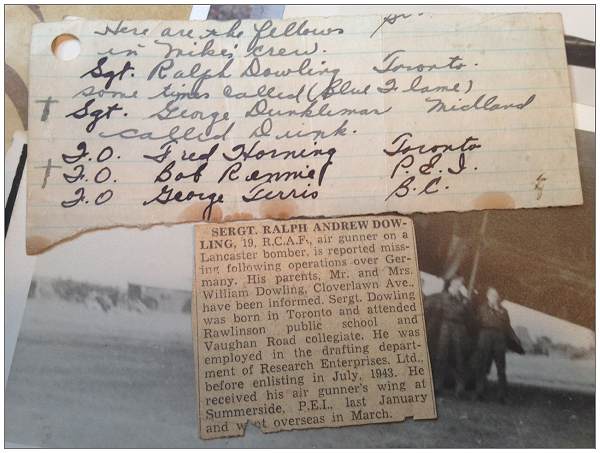 Here are the fellows
in Mike's crew.
Sgt. Ralph Dowling Toronto.
some times called (Blue Flame)
† Sgt. George Dunkleman Midland
called Dunk.
F.O. Fred Horning Toronto
† F.O. Bob Rennie P.E.I.
F.O George Ferris B.C.
SERGT. RALPH ANDREW DOW-
LING, 19, R.C.A.F., air gunner on a
Lancaster bomber, is reported miss-
ing following operations over Ger-
many. His parents, Mr. and Mrs.
William Dowling, Cloverlawn Ave.,
have been informed. Sergt. Dowling
was born in Toronto and attended
Rawlinson public school and
Vaughan Road collegiate. He was
employed in the drafting depart-
ment of Research Enterprises, Ltd.,
before enlisting in July, 1943. He
received his air gunner's wing at
Summerside, P.E.I., last January
and went overseas in March.